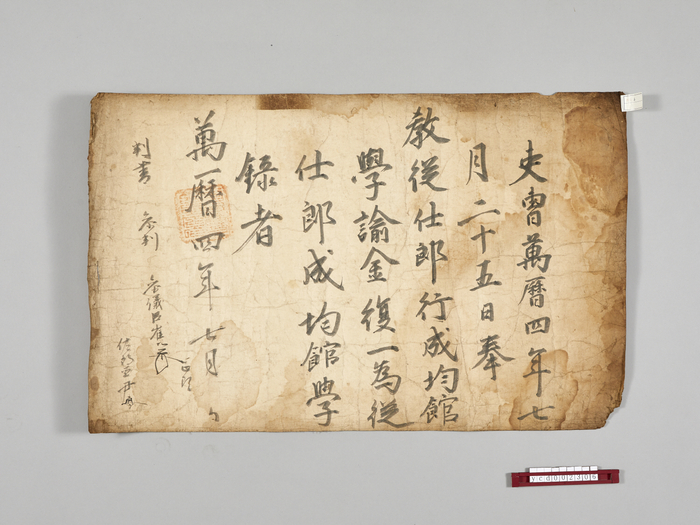 吏曹萬曆四年七
月二十五日奉
教從仕郎行成均館
學諭金復一爲從
仕郎成均館學
錄者
萬曆四年七月 日
判書 參判 參議臣崔 正郎
ycd002306